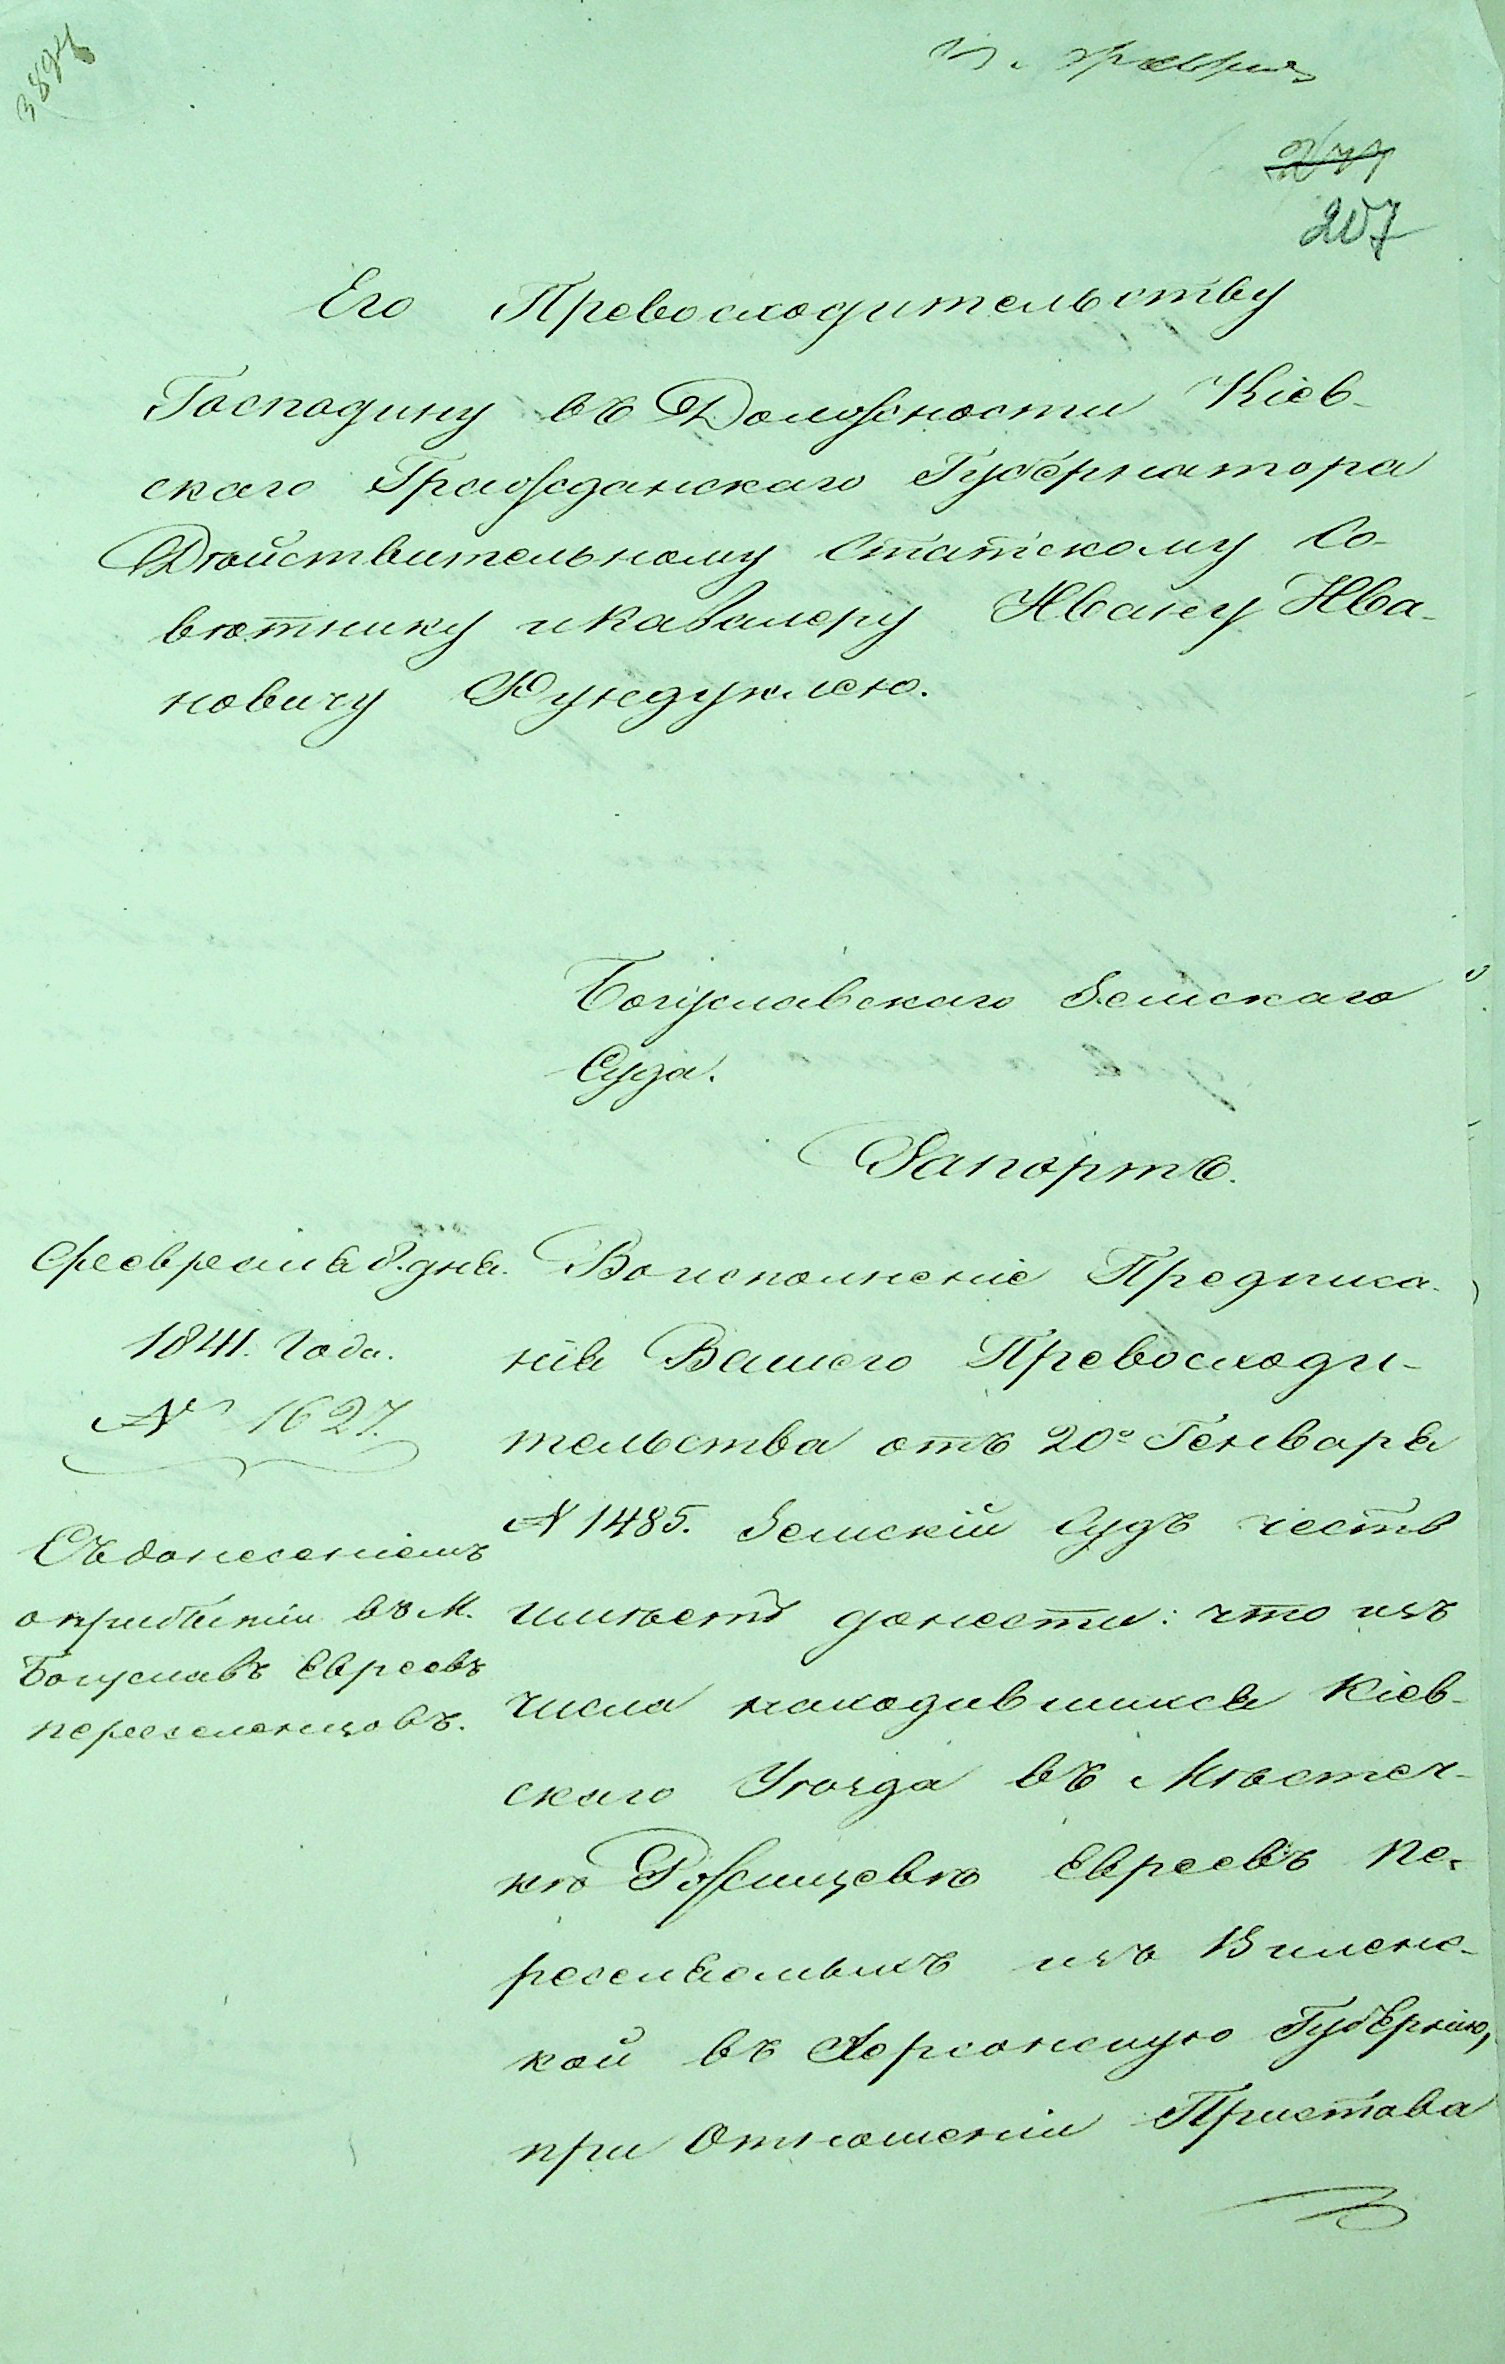 3894
277
207
Его Превосходительству
Господину въ Должности Кіев-
скаго Гражданскаго Губернатора
Дѣйствительному Статскому Со-
вѣтнику и Кавалеру Ивану Ива-
новичу Фундуклею.
Богуславскаго Земскаго
Суда.
Рапортъ.
Февраля 8. дня.
1841. Года.
№ 1627.
Съ донесеніемъ
о прибытіи въ М.
Богуславъ Евреевъ
переселенцовъ.
Во исполненіе Предписа-
нія Вашего Превосходи-
тельства отъ 20го Генваря
№ 1485. Земскій Судъ честь
имѣетъ донести: что изъ
числа находившихся Кіев-
скаго Уѣзда въ Мѣстеч-
кѣ Ржищевѣ Евреевъ пе-
реселяемыхъ изъ Виленс-
кой въ Херсонскую Губернію,
при Отношеніи Пристава